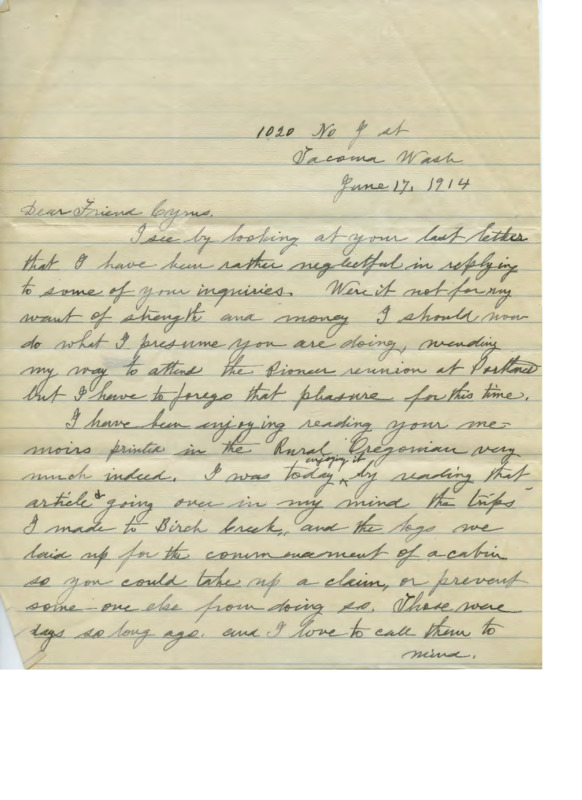 1020 No J st
Tacoma Wash
June 17, 1914
Dear Friend Cyrus.
I see by looking at your last letter
that I have been rather neglectful in replying
to some of your inquiries. Were it not for my
want of strength and money I should now
do what I presume you are doing, wending
my way to attend the Pioneer reunion at Portland
but I have to forego that pleasure for this time.
I have been enjoying reading your me-
moirs printed in the Rural Oregonian very
much indeed. I was today enjoying it by reading that
article & going over in my mind the trips
I made to Birch Creek, and the logs we
laid up for the commencement of a cabin
so you could take up a claim, or prevent
some-one else from doing so. Those were
days so long ago. and I love to call them to
mind.